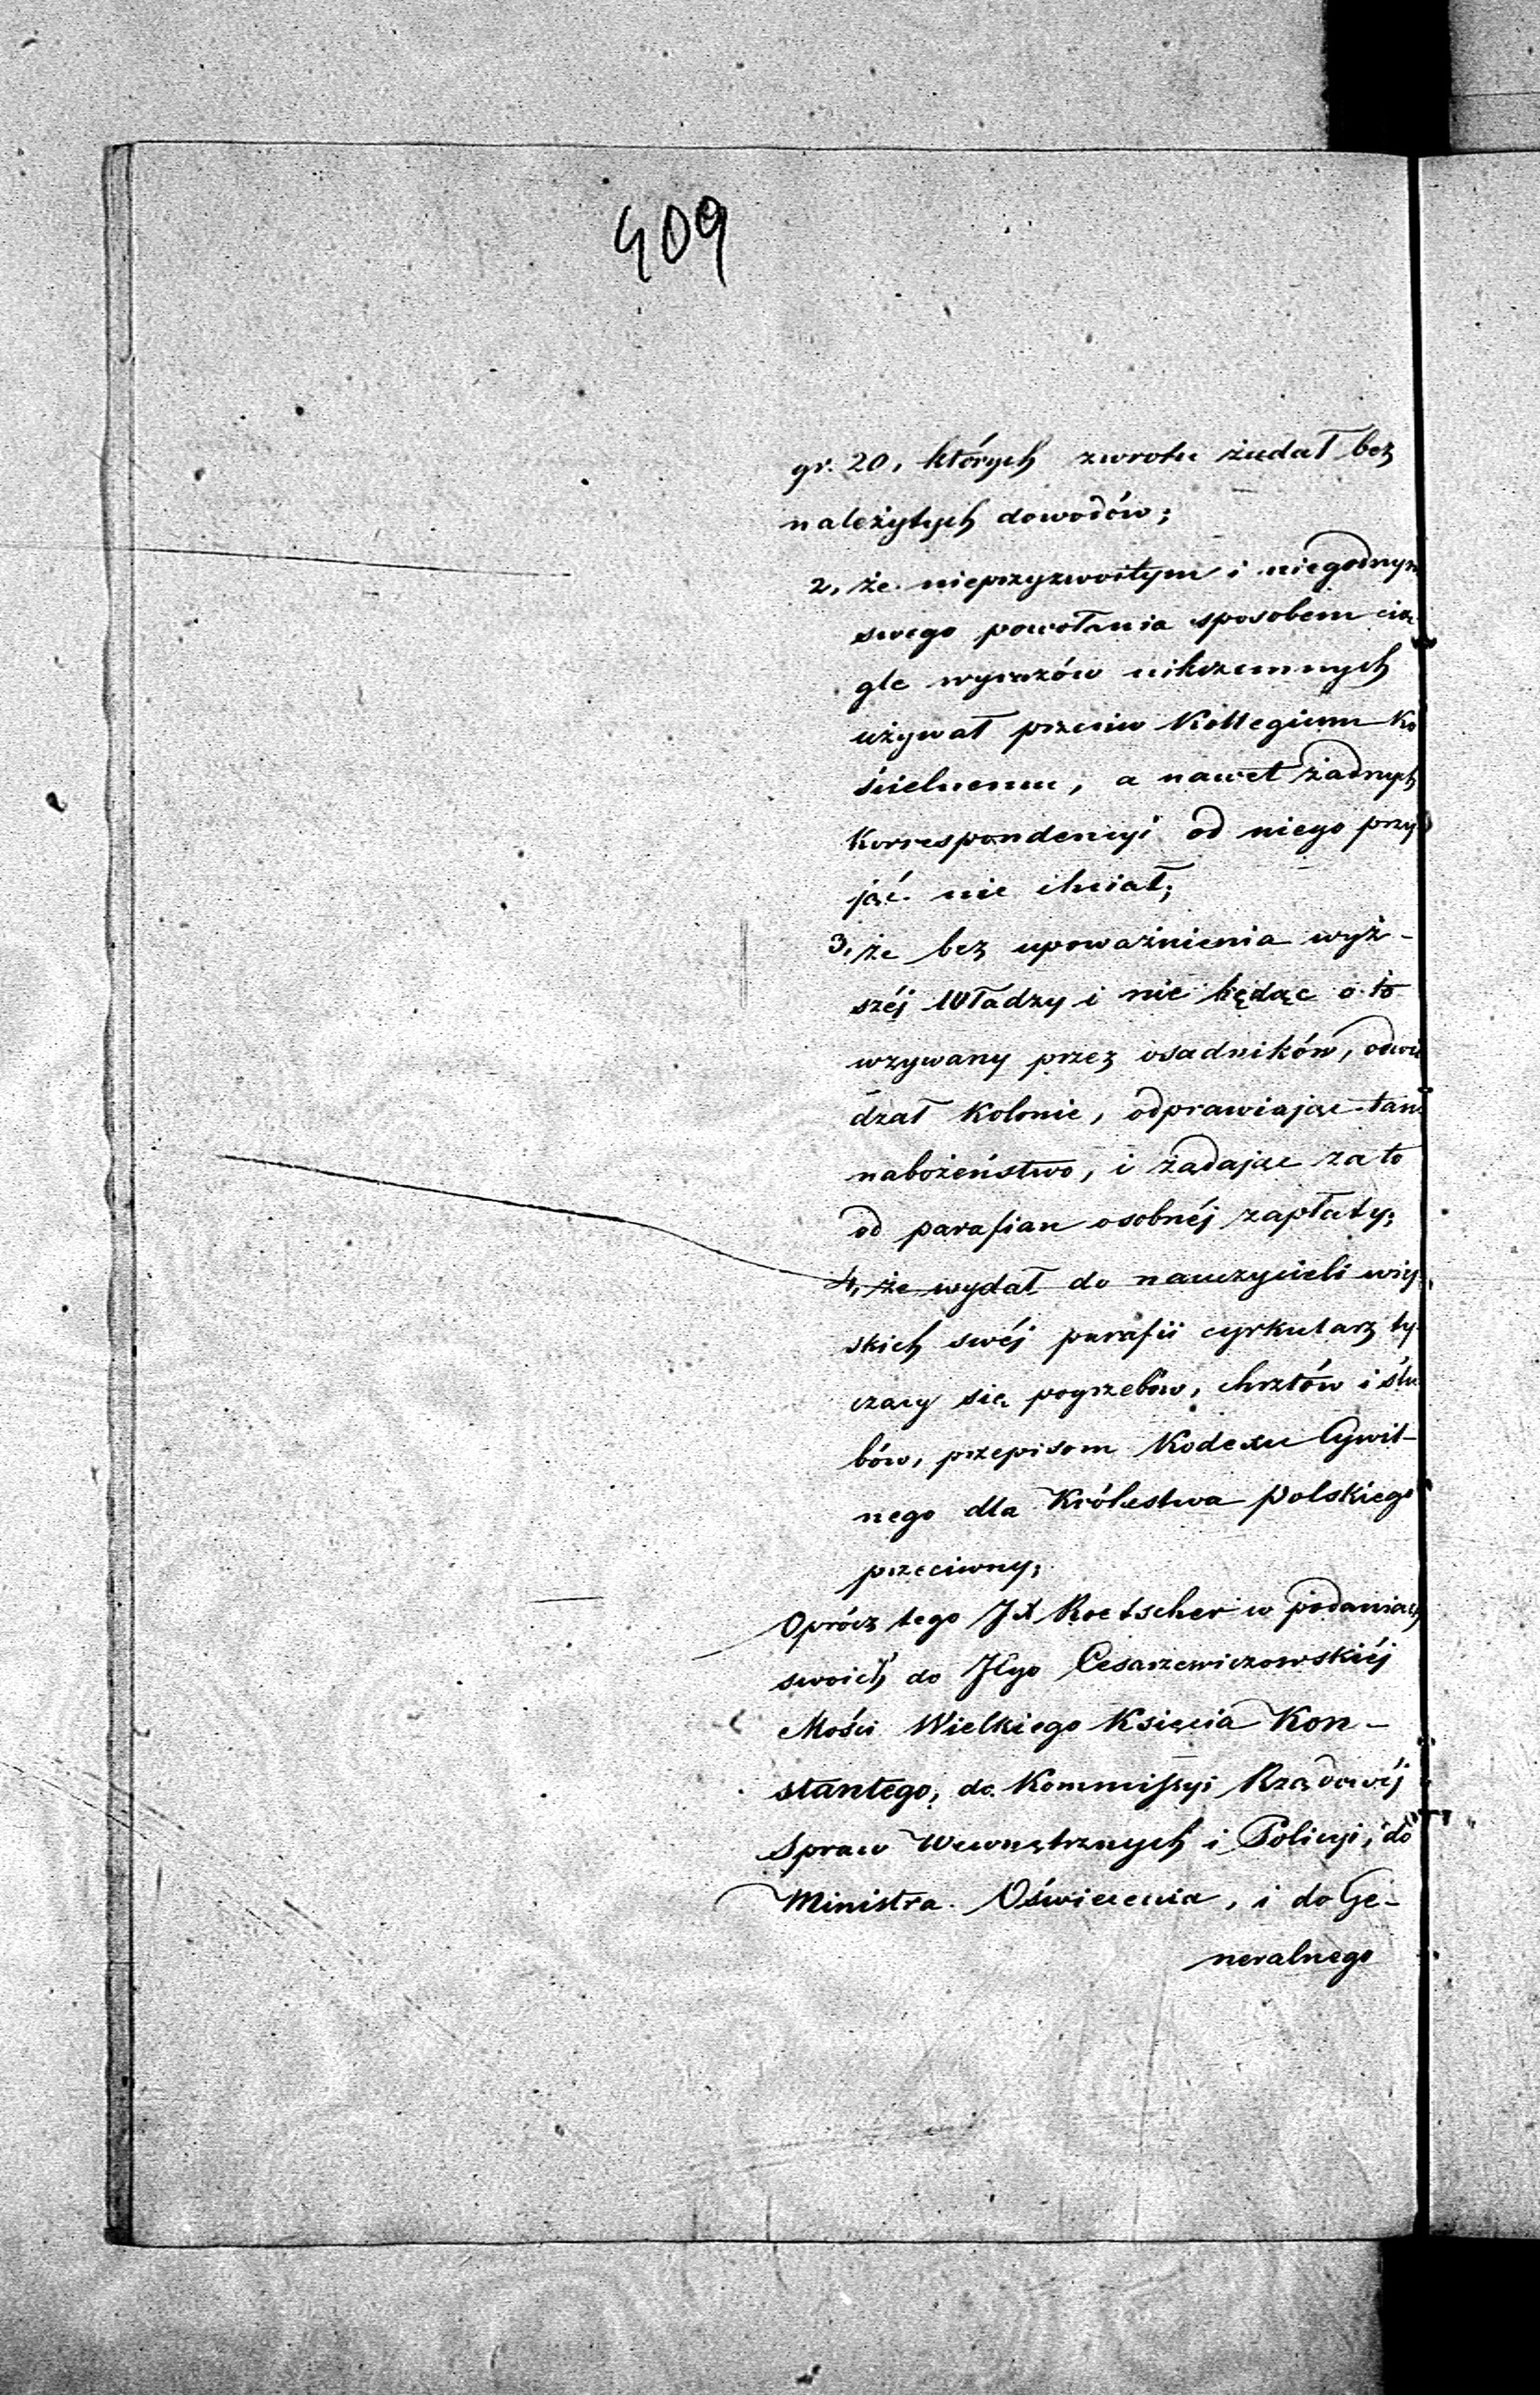 409
gr. 20, których zwrotu żądał bez
należytych dowodów;
2, że nieprzyzwoitym i niegodnym
swego powołania sposobem cią
gle wyrazów nikczemnych
używał przeciw Kollegium Ko
ścielnemu, a nawet żadnych
Korrespondencyi od niego przy
jąć nie chciał;
3, że bez upoważnienia wyż-
széj Władzy i nie będąc o to
wzywany przez osadników, odwie
dzał Kolonie, odprawiając tam
nabożeństwo, i żądając za to
od parafian osobnéj zapłaty;
4, że wydał do nauczycieli wiej
skich swéj parafii cyrkularz ty
czący się pogrzebów, chrztów i ślu
bów, przepisom Kodexu Cywil-
nego dla Królestwa Polskiego
przeciwny;
Oprócz tego JX Roetscher w podaniach
swoich do JEgo Cesarzewiczowskiéj
Mości Wielkiego Księcia Kon-
stantego, do Kommissyi Rządowéj
Spraw Wewnętrznych i Policyi, do
Ministra Oświecenia, i do Ge-
neralnego